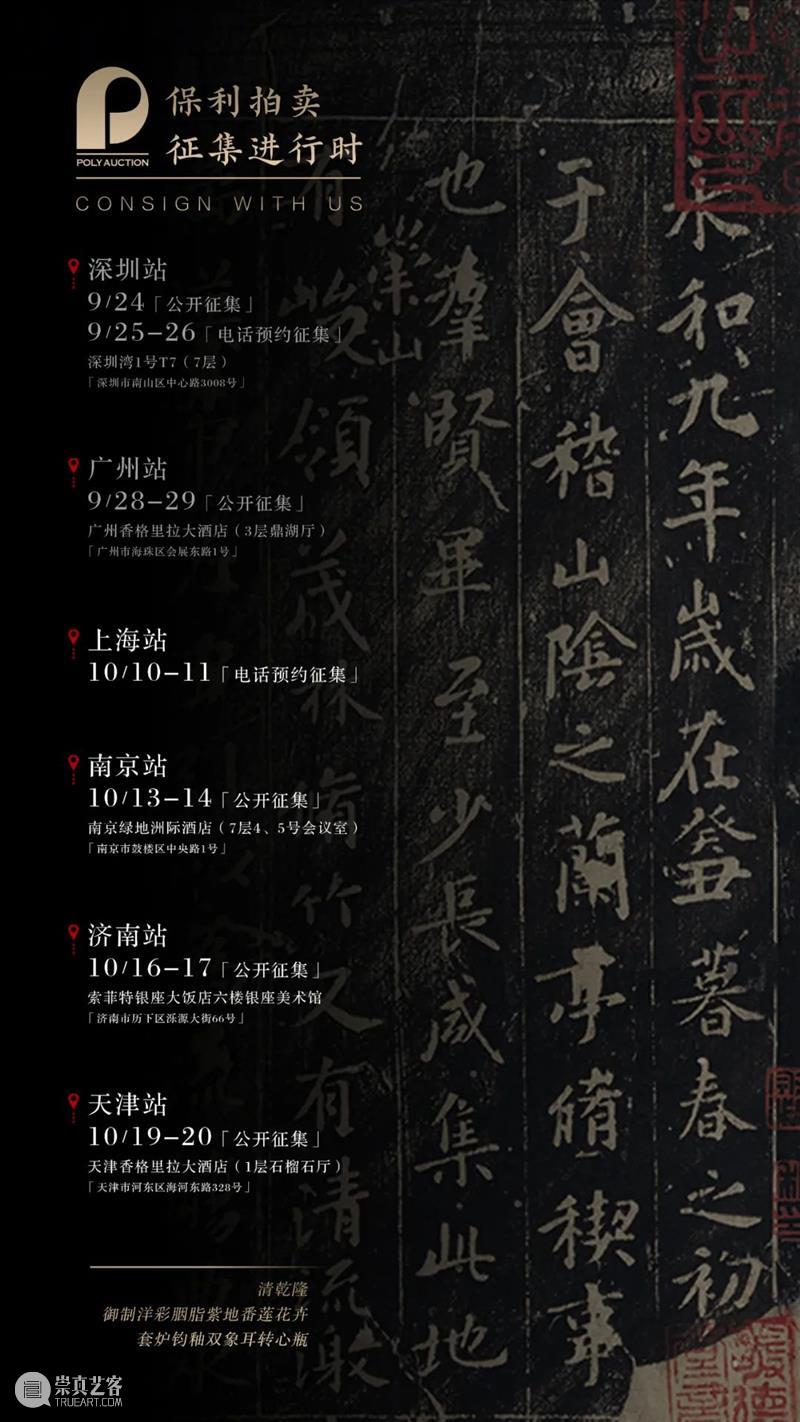 保利拍卖
征集进行时
POLY AUCTION
CONSIGN WITH US
深圳站
9/24「公开征集」
9/25-26「电话预约征集」
深圳湾1号T7（7层）
「深圳市南山区中心路3008号」
广州站
9/28-29「公开征集」
广州香格里拉大酒店（3层鼎湖厅）
「广州市海珠区会展东路1号」
上海站
10/10-11「电话预约征集」
南京站
10/13-14「公开征集」
南京绿地洲际酒店（7层4、5号会议室）
「南京市鼓楼区中央路1号」
济南站
10/16-17「公开征集」
索菲特银座大饭店六楼银座美术馆
「济南市历下区泺源大街66号」
天津站
10/19-20「公开征集」
天津香格里拉大酒店（1层石榴石厅）
「天津市河东区海河东路328号」
清乾隆
御制洋彩胭脂紫地番莲花卉
套炉钧釉双象耳转心瓶
永和九年岁在癸丑暮春之初
于會稽山陰之蘭亭脩稧事
也羣賢畢至少長咸集此地
有崇山峻領茂林脩竹又有清流激
崇真艺客
TRUEART.COM